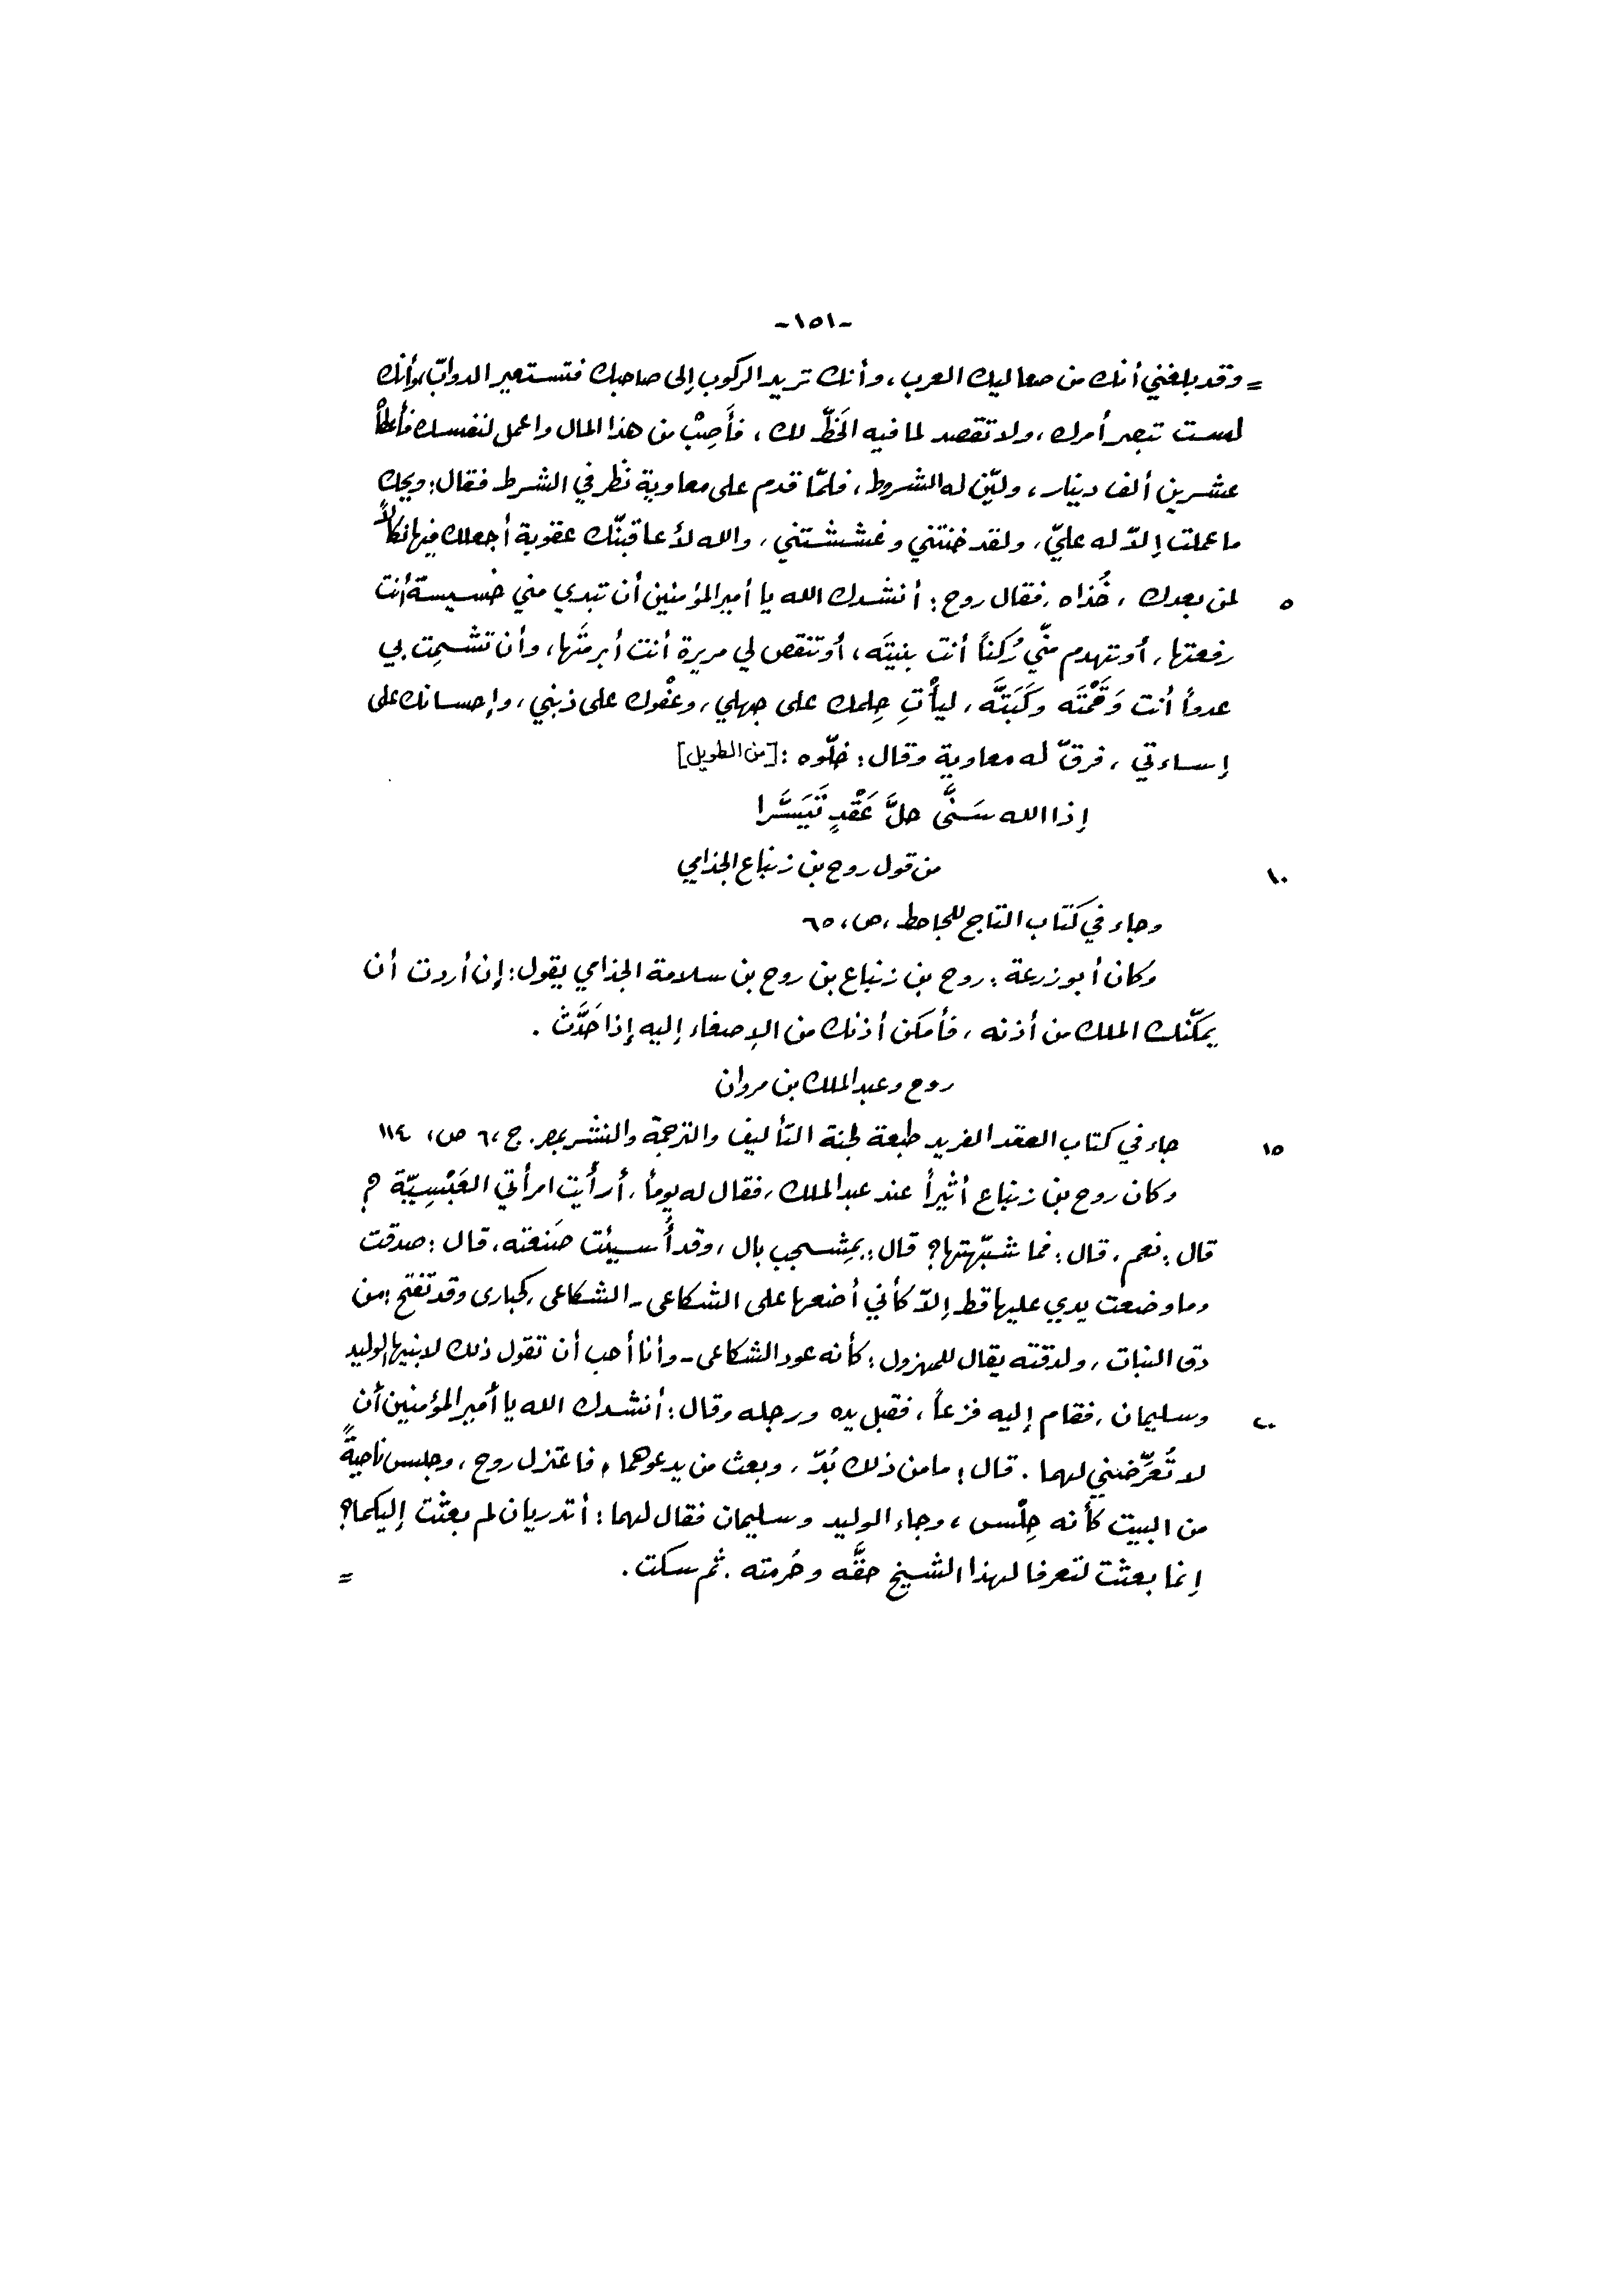 -١٥١-
= وقد بلغني أنك من صعاليك العرب، وأنك تريد الركوب إلى صاحبك فتستعير الدوابّ، وأنك
لست تبصر أمرك، ولا تقصد لما فيه الحَظّ لك، فأَصِبْ من هذا المال واعمل لنفسك فأعطاه
عشرين ألف دينار، وليّن له الشروط، فلمّا قدم على معاوية نظر في الشرط فقال: ويحك
ما عملت إلاّ له عليّ، ولقد خنتني وغششتني، والله لأعاقبنّك عقوبة أجعلك فيها نكالاً
٥ لمن بعدك، خُذاه، فقال روح: أنشدك الله يا أمير المؤمنين أن تبدي مني خسيسة أنت
رفعتها، أو تهدم منّي رُكناً أنت بنيتَه، أو تنقص لي مريرة أنت أبرمتَها، وأن تشمِت بي
عدواً أنت وَقَمْتَه وكَبَتَّه، ليأْتِ حِلمك على جهلي، وعفْوك على ذنبي، وإحسانك على
إساءتي، فرقّ له معاوية وقال: خلّوه: [من الطويل]
إذا الله سَنَّى حلَّ عَقْدٍ تَيَسَّرا
١٠ من قول روح بن زنباع الجذامي
وجاء في كتاب التاج للجاحظ، ص، ٦٥
وكان أبو زرعة: روح بن زنباع بن روح بن سلامة الجذامي يقول: إن أردت أن
يمكّنك الملك من أذنه، فأمكن أذنك من الإصغاء إليه إذا حَدَّث.
روح وعبد الملك بن مروان
١٥ جاء في كتاب العقد الفريد طبعة لجنة التأليف والترجمة والنشر بمصر. ج ٦، ص، ١١٤
وكان روح بن زنباع أثيراً عند عبد الملك، فقال له يوماً، أرأيت امرأتي العَبْسِيّة؟
قال: نعم، قال: فما شبّهتها؟ قال: بمِشجب بال، وقد أُسيئت صَنعته. قال: صدقت
وما وضعت يدي عليها قط إلاّ كأني أضعها على الشكاعى - الشكاعى، كحبارى وقد تفتح: من
دق النبات، ولدقته يقال للمهزول: كأنه عود الشكاعى - وأنا أحب أن تقول ذلك لابنيها الوليد
٢٠ وسليمان، فقام إليه فزعاً، فقبل يده ورجله وقال: أنشدك الله يا أمير المؤمنين أن
لا تُعرِّضني لهما. قال: ما من ذلك بُدّ، وبعث من يدعوهما، فاعتزل روح، وجلس ناحيةً
من البيت كأنه حِلْس، وجاء الوليد وسليمان فقال لهما: أتدريان لم بعثت إليكما؟
إنما بعثت لتعرفا لهذا الشيخ حقَّه وحُرمته. ثم سكت. =